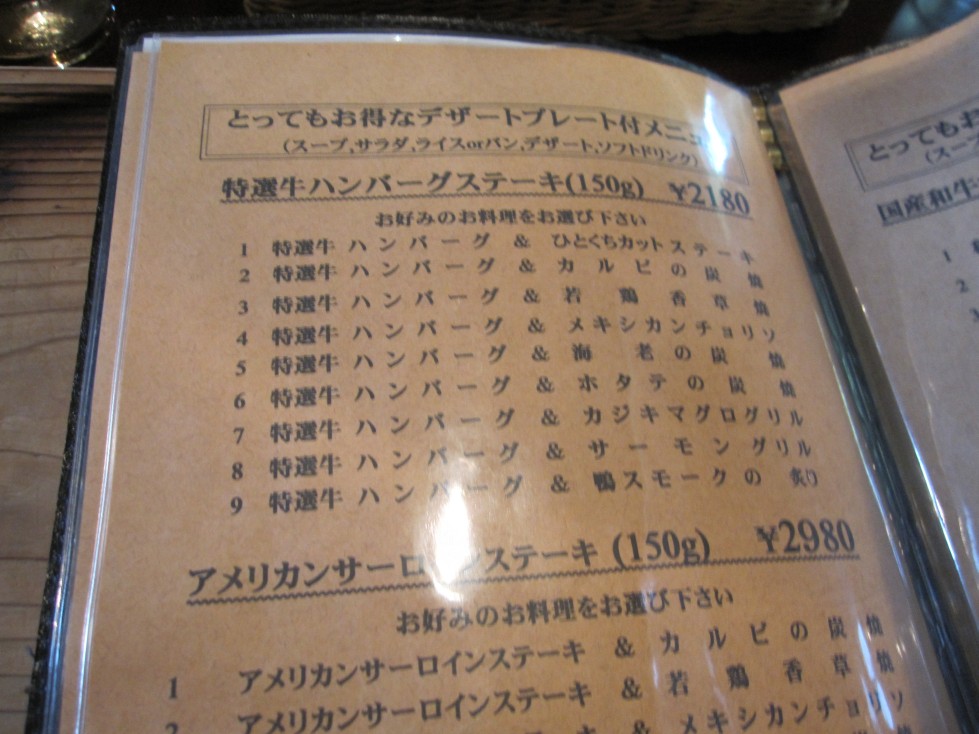 とってもお得なデザートプレート付メニュ
(スープ,サラダ,ライスorパン,デザート,ソフトドリンク)
特選牛ハンバーグステーキ(150g) ¥2180
お好みのお料理をお選び下さい
1 特選牛ハンバーグ & ひとくちカットステーキ
2 特選牛ハンバーグ & カルビの炭焼
3 特選牛ハンバーグ & 若鶏香草焼
4 特選牛ハンバーグ & メキシカンチョリソ
5 特選牛ハンバーグ & 海老の炭焼
6 特選牛ハンバーグ & ホタテの炭焼
7 特選牛ハンバーグ & カジキマグログリル
8 特選牛ハンバーグ & サーモングリル
9 特選牛ハンバーグ & 鴨スモークの炙り
アメリカンサーロインステーキ (150g) ¥2980
お好みのお料理をお選び下さい
1 アメリカンサーロインステーキ & カルビの炭焼
2 アメリカンサーロインステーキ & 若鶏香草焼
キ & メキシカンチョリソ
とってもお
(スープ
国産和牛
1
2
3